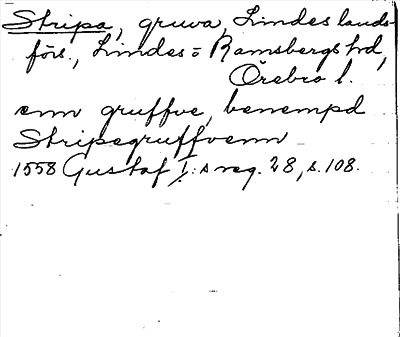 Stripa, gruva, Lindes lands-
förs., Lindes- o Ramsbergs hd,
Örebro l.
enn gruffve, benempd
Stripegruffvenn
1558 Gustaf I:s reg. 28, s. 108.